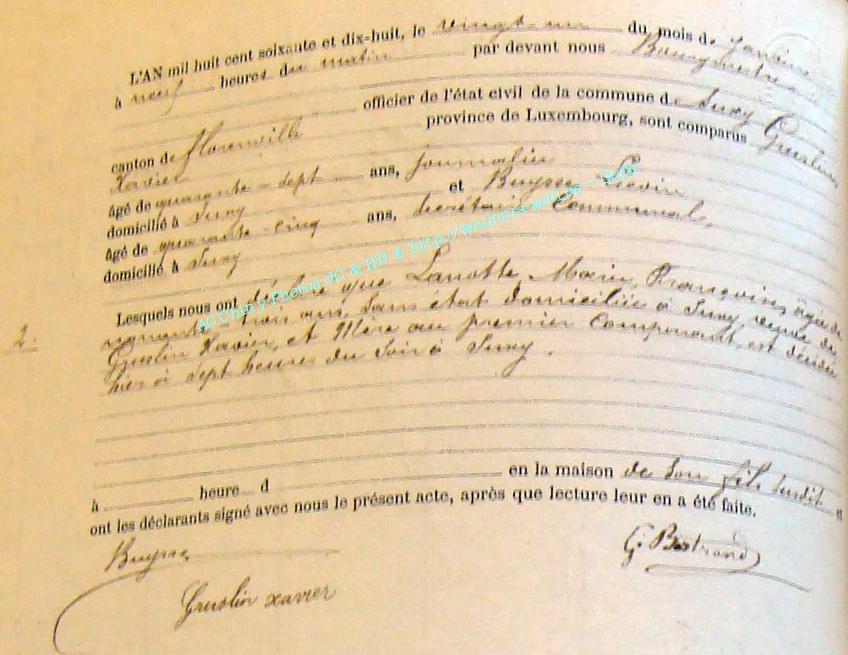 L'AN mil huit cent soixante et dix-huit, le vingt-un du mois de janvier
à neuf heures du matin par devant nous Bourgmestre
officier de l'état civil de la commune de Suxy
canton de Florenville province de Luxembourg, sont comparus Gruslin
Xavier
âgé de quarante-sept ans, journalier
domicilié à Suxy et Buysse
âgé de quarante-cinq ans, Secrétaire Communal,
domicilié à Suxy
AC Chiny Photos JC & HB © http://wallonia-asbl.be
Lesquels nous ont déclaré que Lanotte, Marie, Françoise, âgée de
nonante-trois ans, sans état domiciliée à Suxy veuve de
Gruslin Xavier, et Mère au premier Comparant, est décédée
hier à Sept heures du Soir à Suxy.
2.
à heure d en la maison de son fils susdit et
ont les déclarants signé avec nous le présent acte, après que lecture leur en a été faite.
Buysse
G. Bertrand
Gruslin xavier